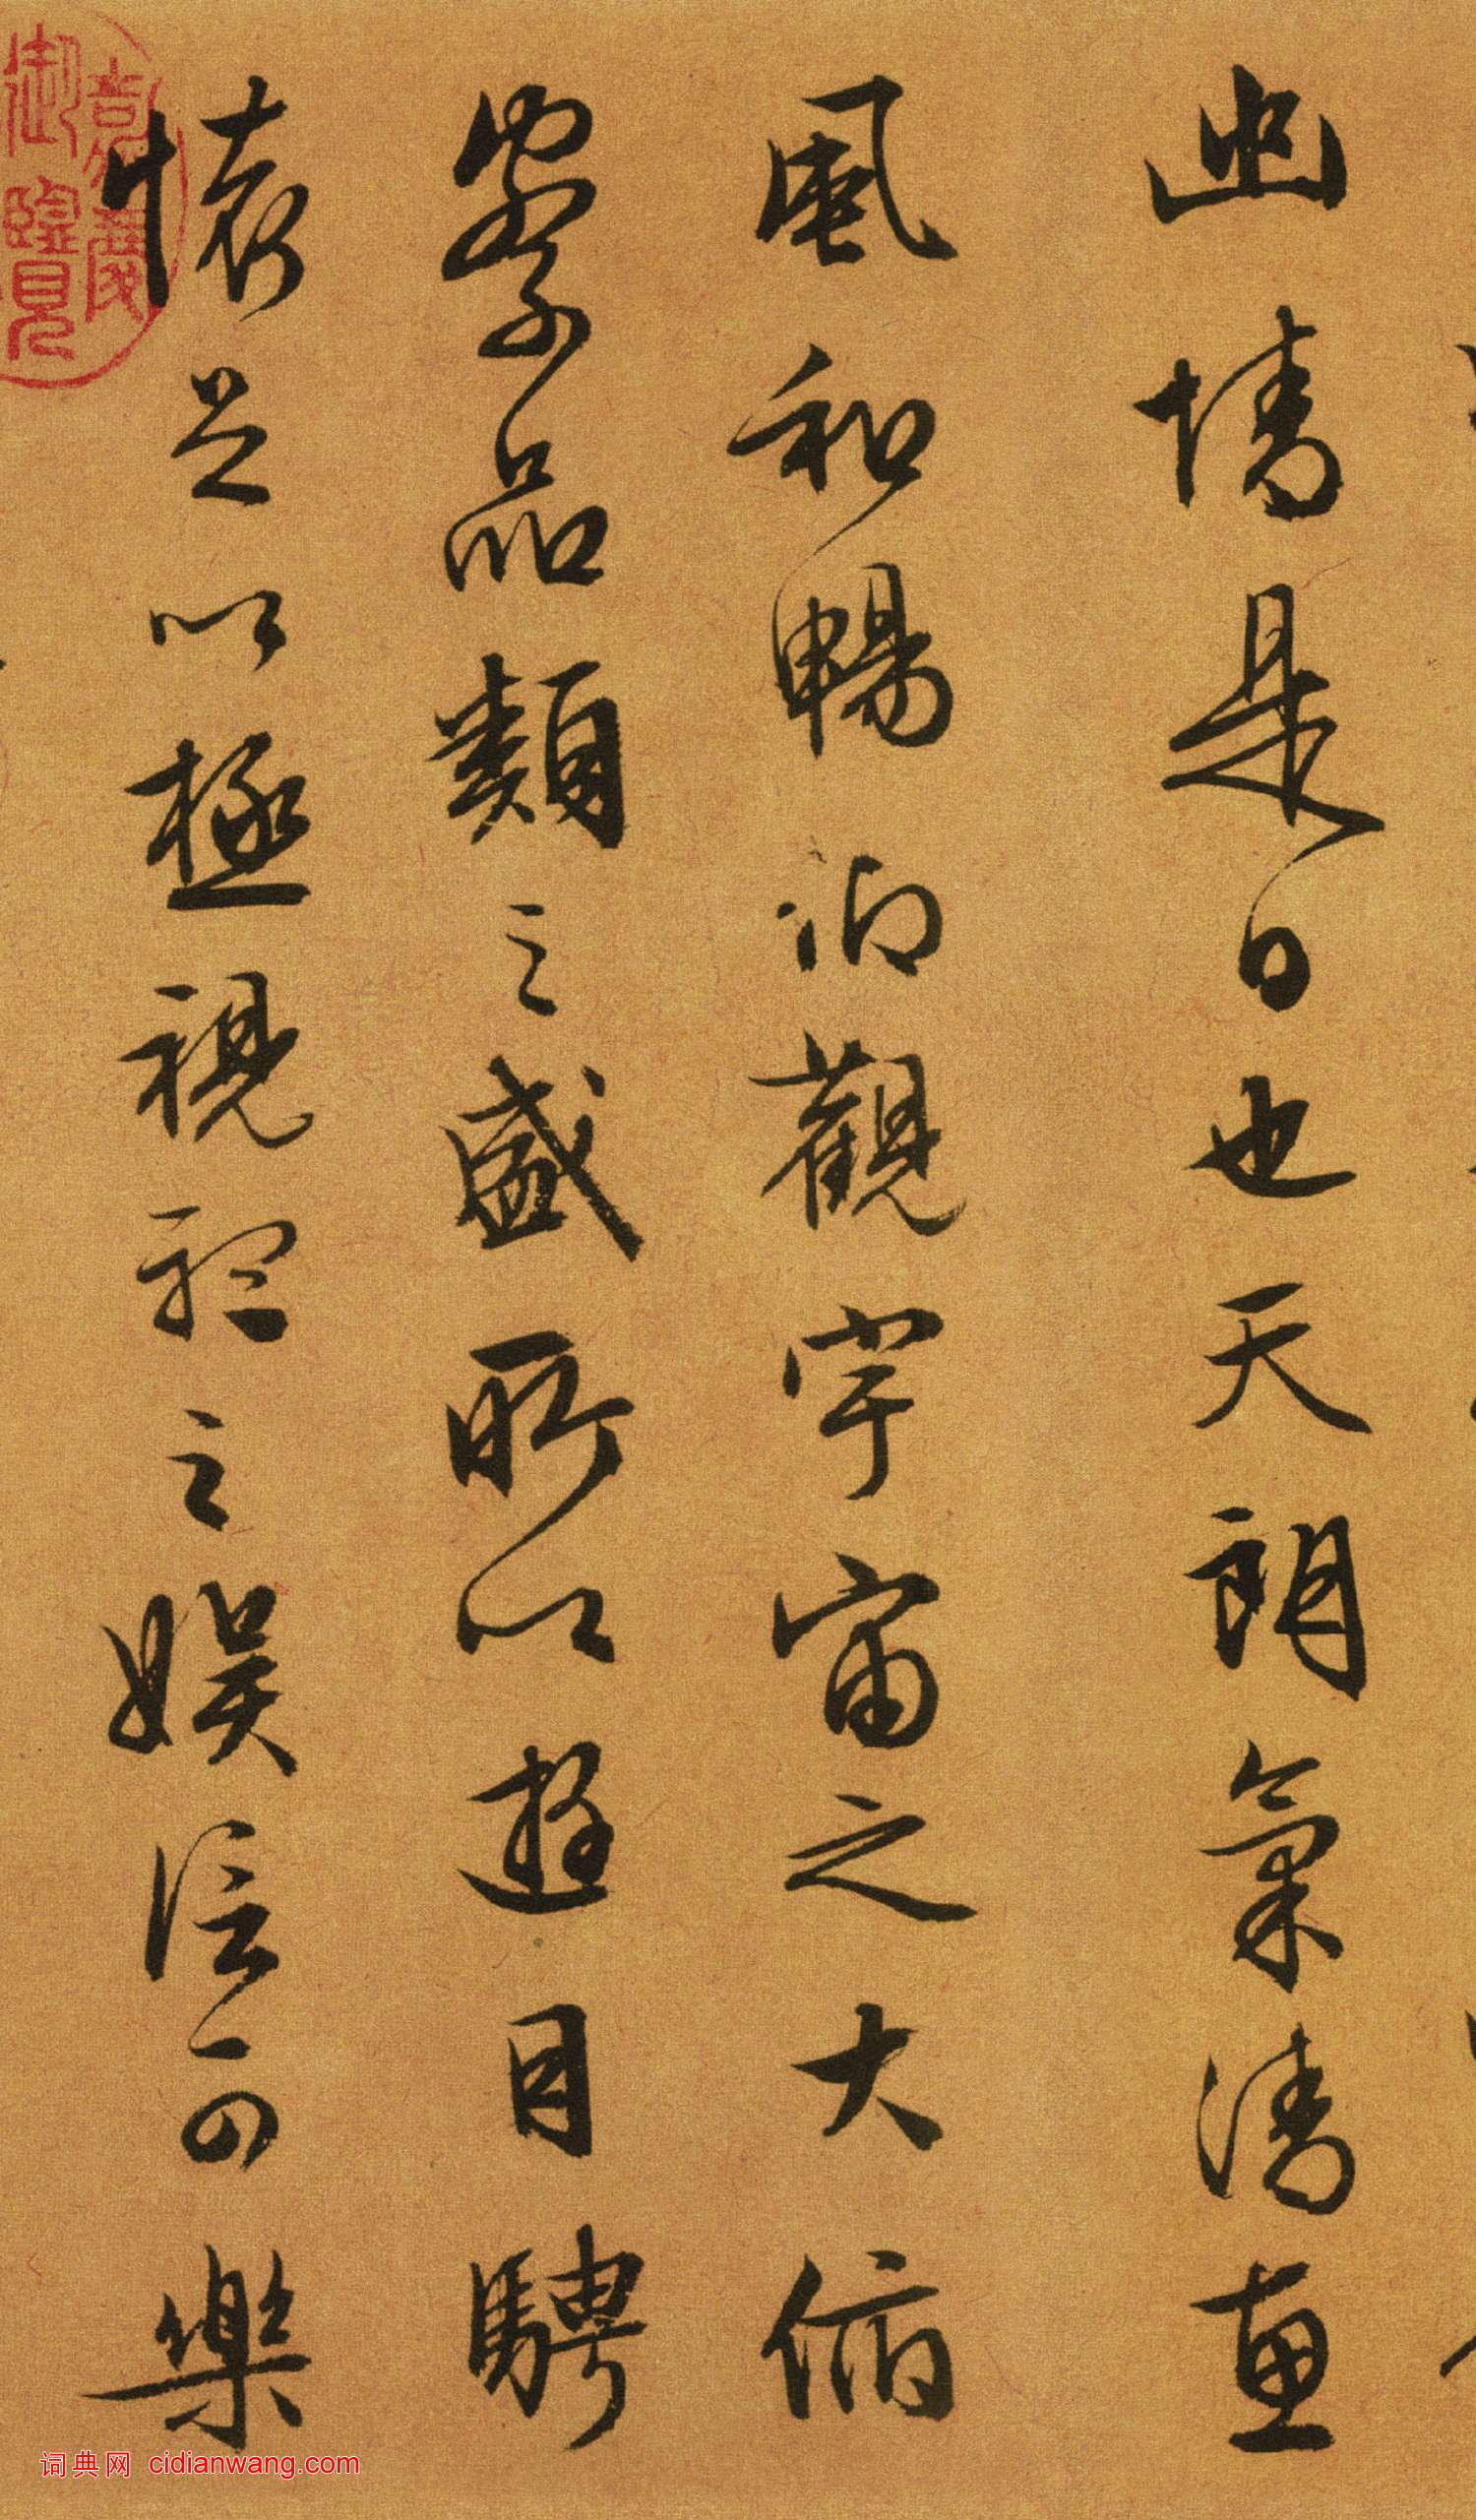 幽情是日也天朗氣清惠
風和暢仰觀宇宙之大俯
察品類之盛所以遊目騁
懷足以極視聽之娛信可樂
嘉慶御覽
词典网 cidianwang.com